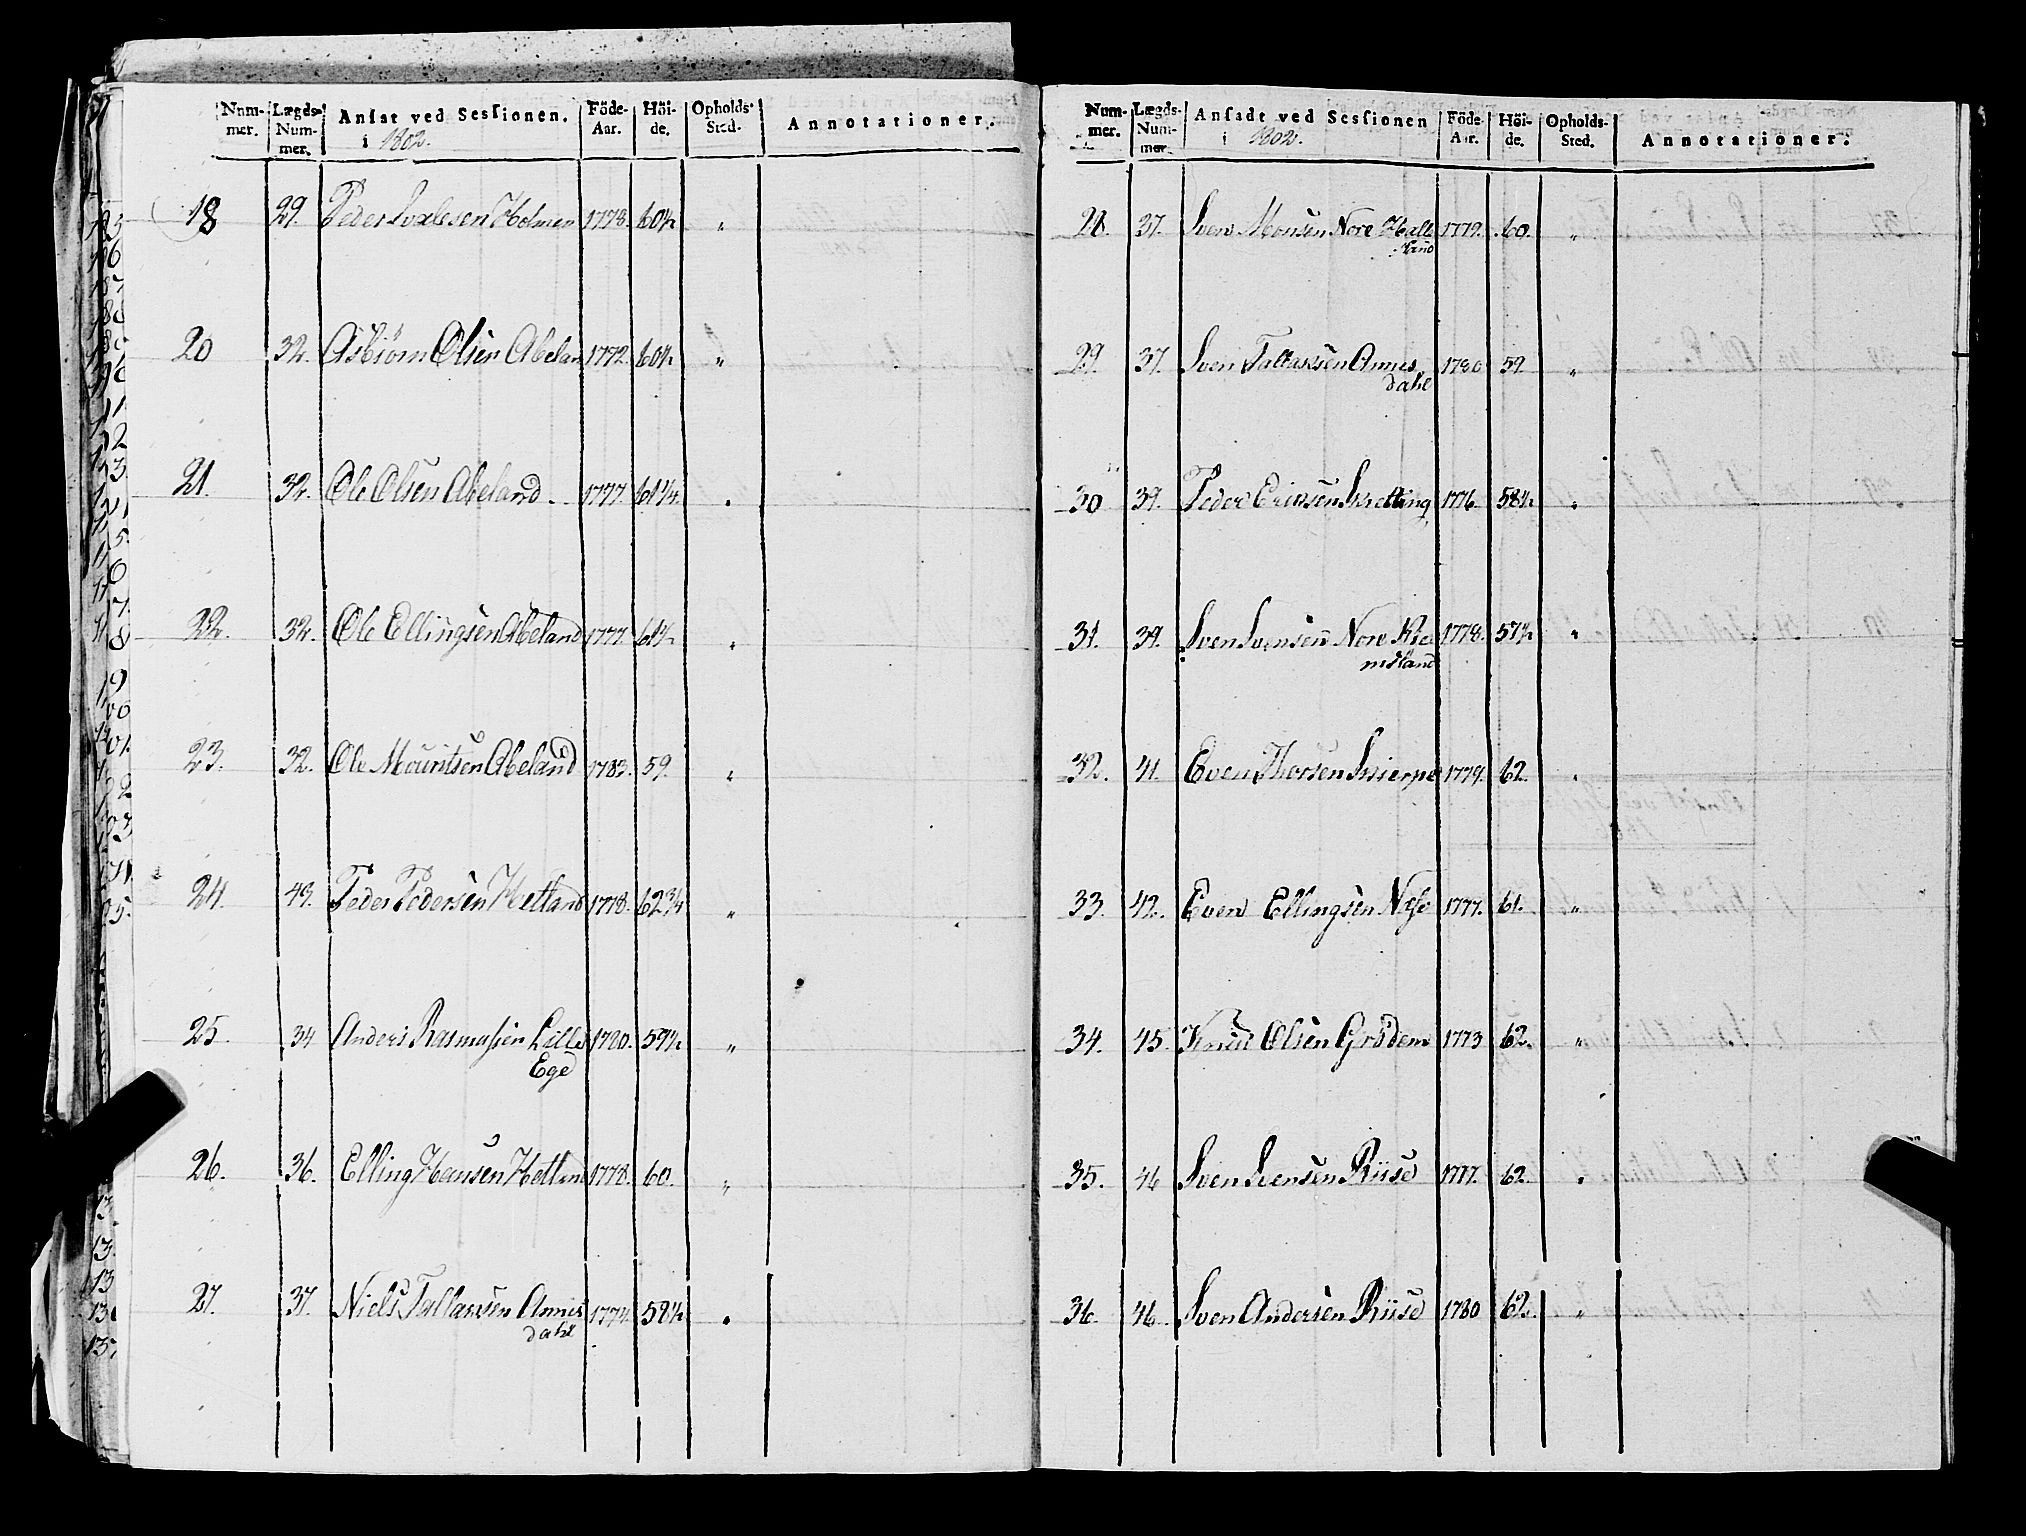 Num-mer. Lægds-Num-mer. Ansat ved Sessionen. i 1802. Föde-Aar. Höi-de. Opholds-Sted. Annotationer.
18 29. Peder Holmen 1778. 60½ "
20 32. Asbiørn Olsen Abelan 1772. 60½ "
21. 32. Ole Olsen Abeland. 1777. 61¼. "
22. 32. Ole Ellingsen Abeland 1777. 61½ "
23. 32. Ole Mouritsen Abeland 1783. 59. "
24. 43. Peder Pedersen Hetland 1778. 62¾ "
25. 34 Anders Rasmussen Lille 1780. 59½ "
Ege
26. 36. Elling Hansen Hetland 1778. 60. "
27. 37. Niels Tallaksen Annis 1774. 58½ "
dahl
Num-mer. Lægds-Num-mer. Ansadt ved Sessionen i 1802. Föde-Aar. Höi-de. Opholds-Sted. Annotationer.
28. 37. Sven Monsen Nore Halle 1779. 60. "
29. 37. Sven Tallaksen Annis 1780 59 "
dahl
30 39. Peder Eriksen Skretting 1776. 58½ "
31. 39. Sven Svensen Nore 1778. 57½ "
32. 41. Even Thorsen Skierpe 1779. 62. "
33. 42. Even Ellingsen Næse 1777. 61. "
34. 45. Knud Olsen Grødem 1773 62. "
35. 46 Sven Svensen Riise 1777. 62. "
36 46 Sven Andersen Riise 1780 62. "